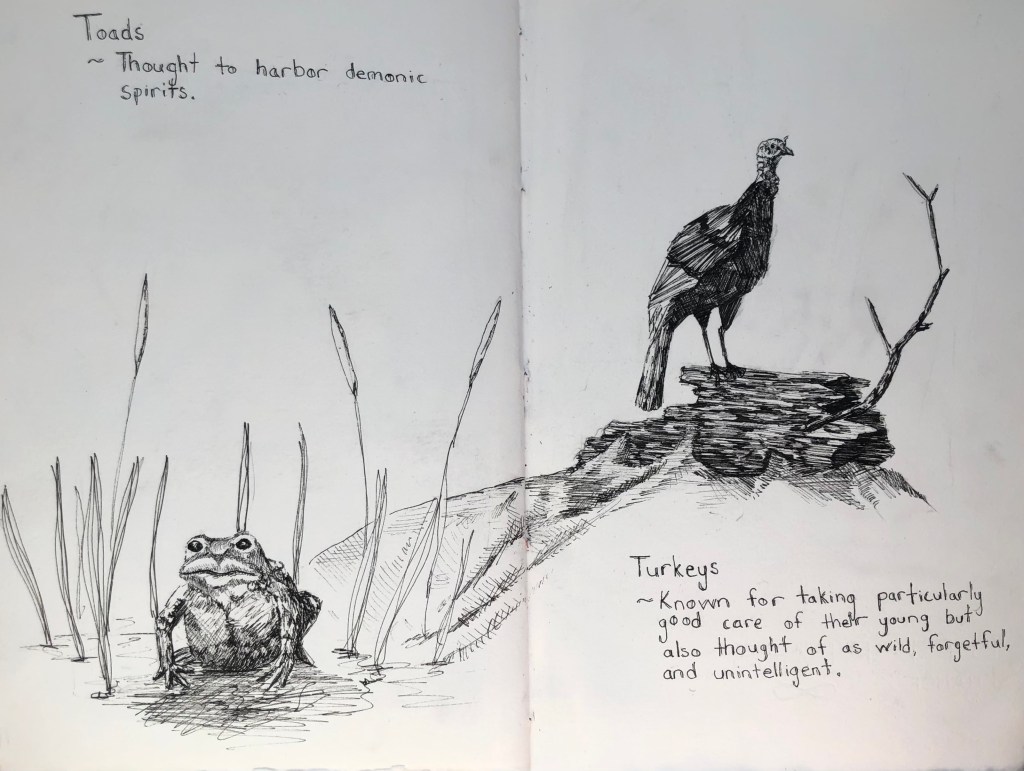 Toads
~ Thought to harbor demonic
spirits.
Turkeys
~ Known for taking particularly
good care of their young but
also thought of as wild, forgetful,
and unintelligent.